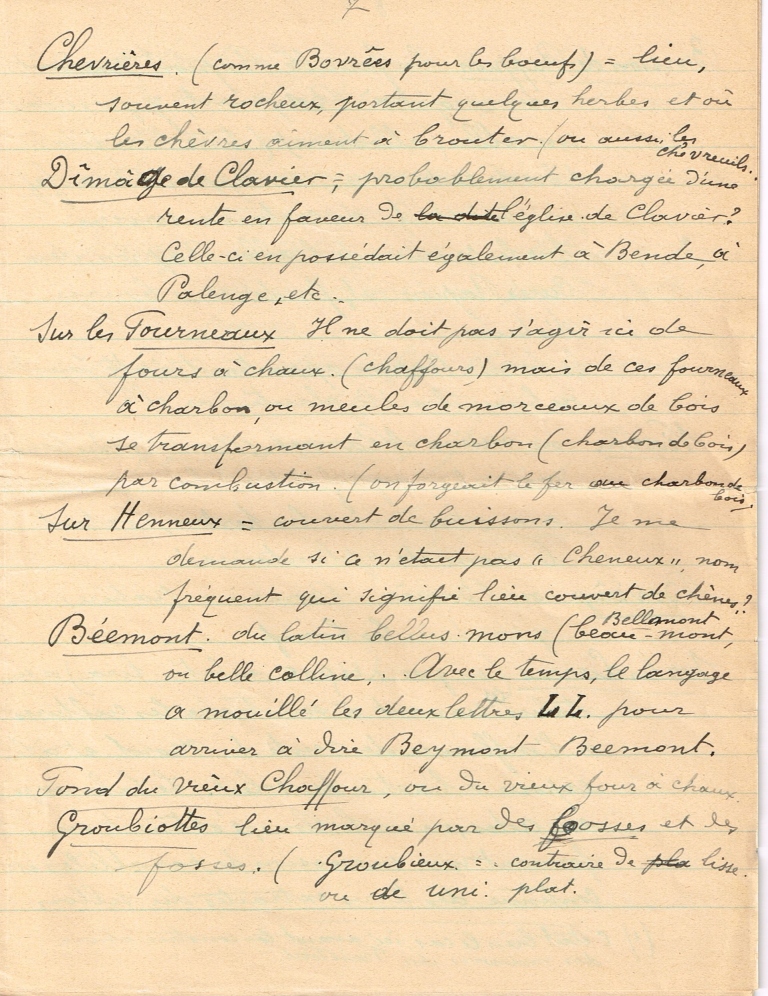 7
Chevrières. (comme Bovrées pour les boeufs) = lieu,
souvent rocheux, portant quelques herbes et où
les chèvres aiment à brouter. (ou aussi, les
chevreuils.
Dîmage de Clavier = probablement chargée d'une
rente en faveur de la dite l'église de Clavier?
Celle-ci en possédait également à Bende, à
Palenge, etc..
Sur les Fourneaux Il ne doit pas s'agir ici de
fours à chaux. (chaffours) mais de ces fourneaux
à charbon, ou meules de morceaux de bois
se transformant en charbon (charbon de bois)
par combustion. (on forgeait le fer au charbon de
bois.
Sur Henneux = couvert de buissons. Je me
demande si ce n'était pas "Cheneux", nom
fréquent qui signifie lieu couvert de chênes.?
Bellemont
Béemont. du latin bellus mons (beau-mont,
ou belle colline,. Avec le temps, le langage
a mouillé les deux lettres LL. pour
arriver à dire Beymont Beemont.
Fond du vieux Chaffour, ou du vieux four à chaux.
Groubiottes lieu marqué par des bosses et des
fosses. ( Groubieux = contraire de pla lisse.
ou de uni. plat.